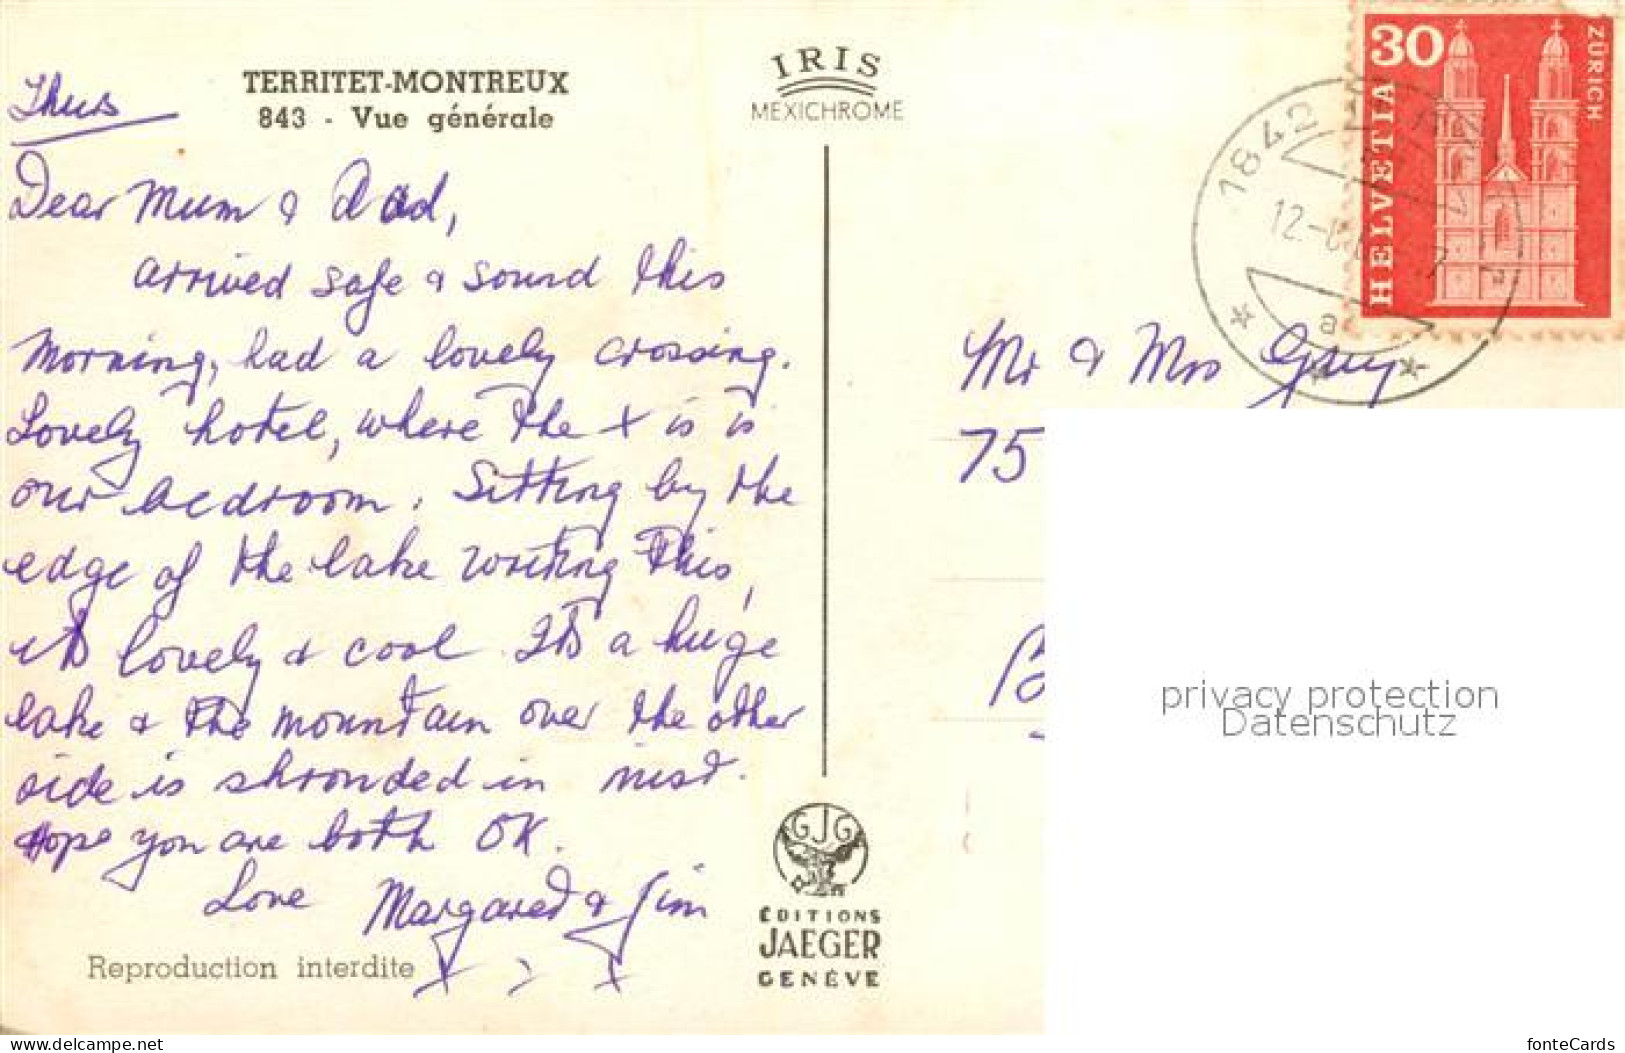 TERRITET-MONTREUX
843 - Vue générale
Thurs
Dear Mum & Dad,
arrived safe & sound this
morning, had a lovely crossing.
Lovely hotel, where the x is is
our bedroom. Sitting by the
edge of the lake writing this,
its lovely & cool. Its a huge
lake & the mountain over the other
side is shrouded in mist.
Hope you are both OK.
Love Margaret & Jim
X X X
Reproduction interdite
IRIS
MEXICHROME
GJG
ÉDITIONS
JAEGER
GENÈVE
30
ZÜRICH
HELVETIA
1842
12.-
a
Mr & Mrs
75
B
privacy protection
Datenschutz
www.delcampe.net
fonteCards